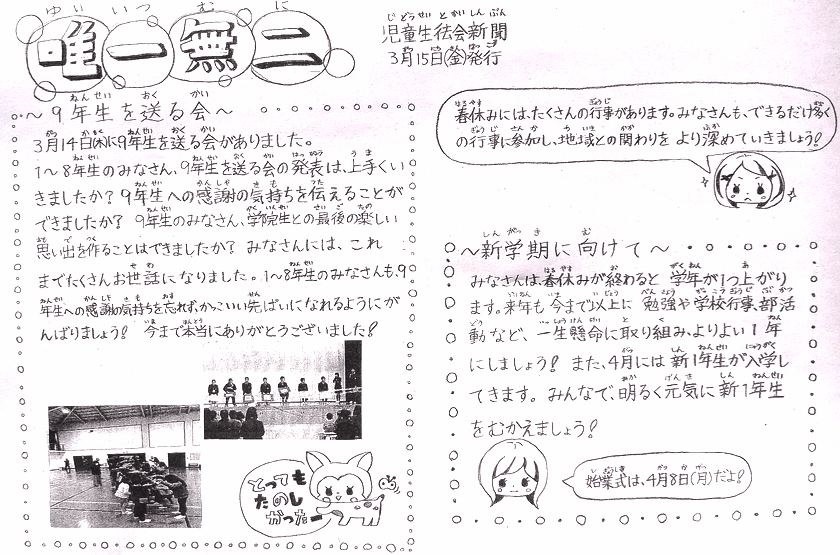 唯一無二
児童生徒会新聞
3月15日(金)発行
～9年生を送る会～
3月14日(木)に9年生を送る会がありました。
1～8年生のみなさん、9年生を送る会の発表は、上手くい
きましたか？9年生への感謝の気持ちを伝えることが
できましたか？9年生のみなさん、学院生との最後の楽しい
思い出を作ることはできましたか？みなさんには、これ
までたくさんお世話になりました。1～8年生のみなさんも、9
年生への感謝の気持ちを忘れず、かっこいい先ぱいになれるようにが
んばりましょう！今まで本当にありがとうございました！
とっても
たのし
かったー
春休みには、たくさんの行事があります。みなさんも、できるだけ多く
の行事に参加し、地域との関わりをより深めていきましょう！
～新学期に向けて～
みなさんは、春休みが終わると学年が1つ上がり
ます。来年も今まで以上に勉強や学校行事、部活
動など、一生懸命に取り組み、よりよい1年
にしましょう！また、4月には新1年生が入学し
てきます。みんなで、明るく元気に新1年生
をむかえましょう！
始業式は、4月8日(月)だよ！